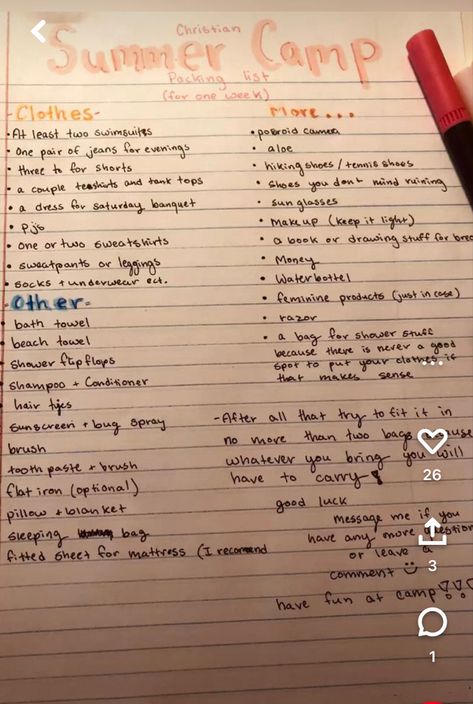 Christian
Summer Camp
Packing list
(for one week)
-Clothes-
• At least two swimsuits
• One pair of jeans for evenings
• three to for shorts
• a couple teshirts and tank tops
• a dress for saturday banquet
• Pjs
• one or two sweatshirts
• sweatpants or leggings
• socks + underwear ect.
-Other-
bath towel
beach towel
shower flipflops
shampoo + Conditioner
hair ties
sunscreen + bug spray
brush
tooth paste + brush
flat iron (optional)
pillow + blanket
sleeping bag
fitted sheet for mattress (I recomend
More...
• poloroid camera
• aloe
• hiking shoes / tennis shoes
• shoes you dont mind ruining
• sunglasses
• Makeup (keep it light)
• a book or drawing stuff for
• Money
• Waterbottel
• feminine products (just in case)
• razor
• a bag for shower stuff
because there is never a good
spot to put your clothes if
that makes sense
-After all that try to fit it in
no more than two bags
whatever you bring you will
have to carry!
good luck
message me if you
have any more
or leave a
comment
have fun at camp!!!
26
3
1